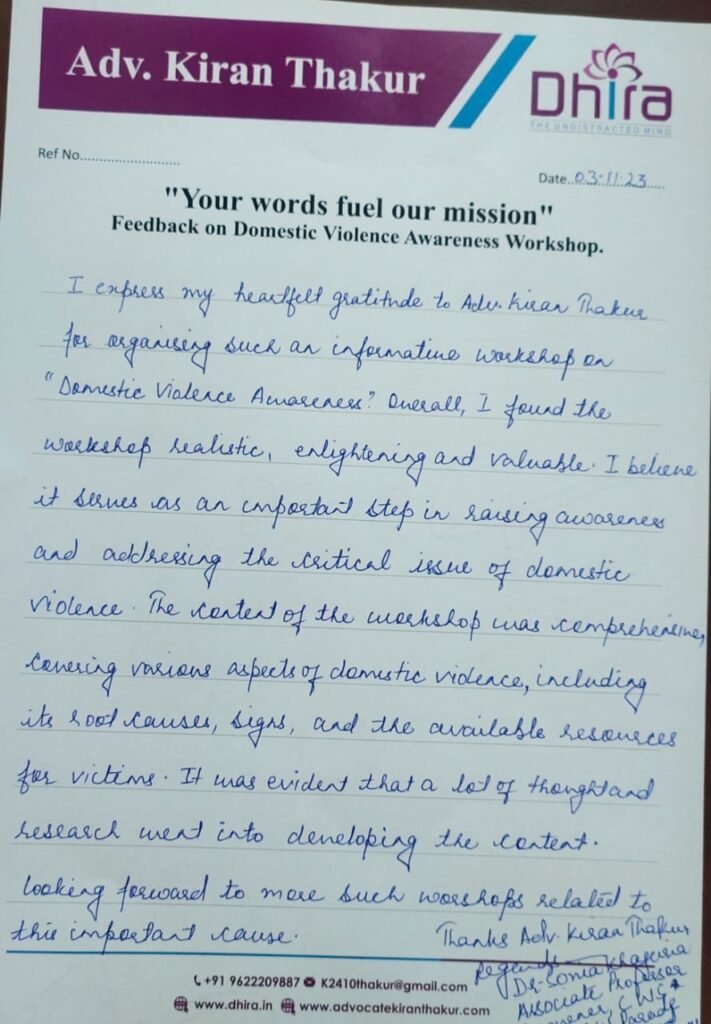 Adv. Kiran Thakur
Dhira
THE UNDISTRACTED MIND
Ref No..........................
Date..03-11-23.....
"Your words fuel our mission"
Feedback on Domestic Violence Awareness Workshop.
I express my heartfelt gratitude to Adv. Kiran Thakur
for organising such an informative workshop on
"Domestic Violence Awareness". Overall, I found the
workshop realistic, enlightening and valuable. I believe
it serves as an important step in raising awareness
and addressing the critical issue of domestic
violence. The content of the workshop was comprehensive,
covering various aspects of domestic violence, including
its root causes, signs, and the available resources
for victims. It was evident that a lot of thought and
research went into developing the content.
Looking forward to more such worshops related to
this important cause.
Thanks Adv. Kiran Thakur
Regards
Dr. Sonia
Associate Professor
CWC
+91 9622209887 K2410thakur@gmail.com
www.dhira.in www.advocatekiranthakur.com